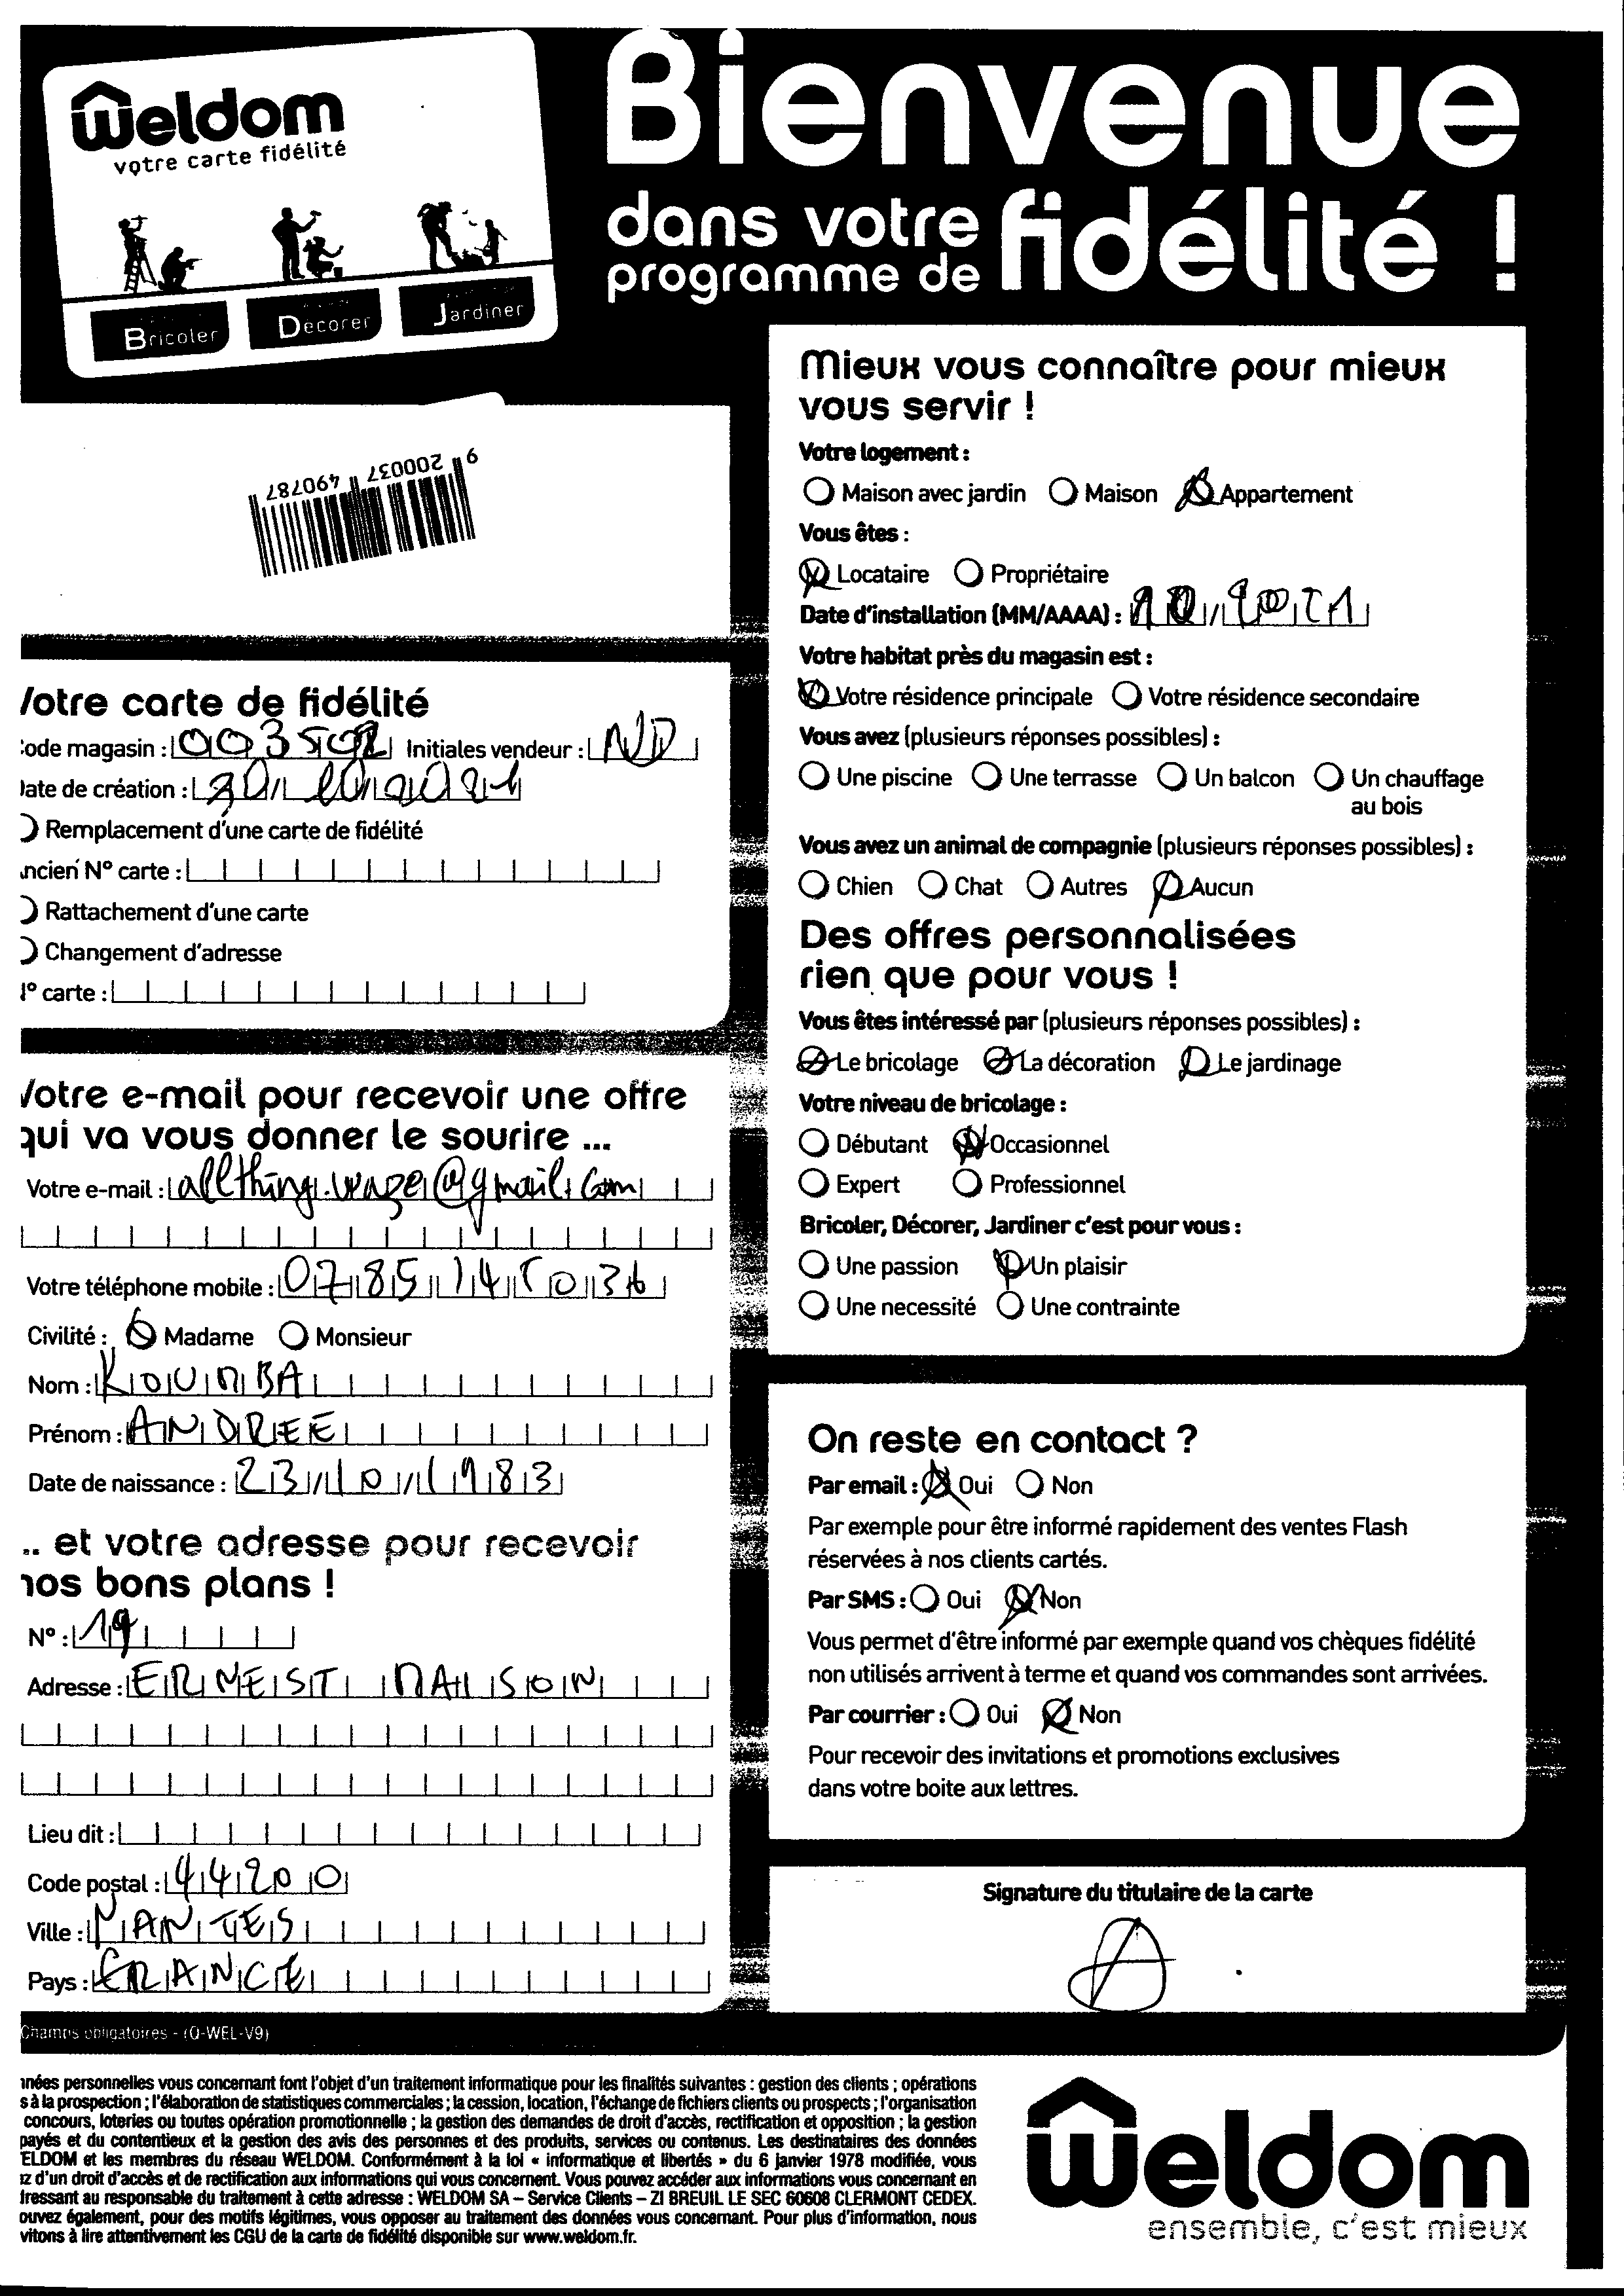 Weldom
votre carte fidélité
Bricoler
Décorer
Jardiner
Bienvenue
dans votre
programme de
fidélité !
9 200037 490787
Votre carte de fidélité
Code magasin : 003502 Initiales vendeur : ND
Date de création : 30/10/2021
Remplacement d'une carte de fidélité
Ancien N° carte :
Rattachement d'une carte
Changement d'adresse
N° carte :
Votre e-mail pour recevoir une offre
qui va vous donner le sourire ...
Votre e-mail : @gmail.com
Votre téléphone mobile : 07 85 14 50 36
Civilité : Madame Monsieur
Nom : KOUMBA
Prénom : ANDREE
Date de naissance : 23/10/1983
.. et votre adresse pour recevoir
nos bons plans !
N° : 19
Adresse : ERNEST MAISON
Lieu dit :
Code postal : 44200
Ville : NANTES
Pays : FRANCE
Champs obligatoires - (O-WEL-V9)
Mieux vous connaître pour mieux
vous servir !
Votre logement :
Maison avec jardin Maison Appartement
Vous êtes :
Locataire Propriétaire
Date d'installation (MM/AAAA) :
Votre habitat près du magasin est :
Votre résidence principale Votre résidence secondaire
Vous avez (plusieurs réponses possibles) :
Une piscine Une terrasse Un balcon Un chauffage
au bois
Vous avez un animal de compagnie (plusieurs réponses possibles) :
Chien Chat Autres Aucun
Des offres personnalisées
rien que pour vous !
Vous êtes intéressé par (plusieurs réponses possibles) :
Le bricolage La décoration Le jardinage
Votre niveau de bricolage :
Débutant Occasionnel
Expert Professionnel
Bricoler, Décorer, Jardiner c'est pour vous :
Une passion Un plaisir
Une necessité Une contrainte
On reste en contact ?
Par email : Oui Non
Par exemple pour être informé rapidement des ventes Flash
réservées à nos clients cartés.
Par SMS : Oui Non
Vous permet d'être informé par exemple quand vos chèques fidélité
non utilisés arrivent à terme et quand vos commandes sont arrivées.
Par courrier : Oui Non
Pour recevoir des invitations et promotions exclusives
dans votre boite aux lettres.
Signature du titulaire de la carte
nnées personnelles vous concernant font l'objet d'un traitement informatique pour les finalités suivantes : gestion des clients ; opérations
s à la prospection ; l'élaboration de statistiques commerciales ; la cession, location, l'échange de fichiers clients ou prospects ; l'organisation
concours, loteries ou toutes opération promotionnelle ; la gestion des demandes de droit d'accès, rectification et opposition ; la gestion
payés et du contentieux et la gestion des avis des personnes et des produits, services ou contenus. Les destinataires des données
ELDOM et les membres du réseau WELDOM. Conformément à la loi « informatique et libertés » du 6 janvier 1978 modifiée, vous
ez d'un droit d'accès et de rectification aux informations qui vous concernent. Vous pouvez accéder aux informations vous concernant en
dressant au responsable du traitement à cette adresse : WELDOM SA – Service Clients – ZI BREUIL LE SEC 60608 CLERMONT CEDEX.
ouvez également, pour des motifs légitimes, vous opposer au traitement des données vous concernant. Pour plus d'information, nous
vitons à lire attentivement les CGU de la carte de fidélité disponible sur www.weldom.fr.
Weldom
ensemble, c'est mieux